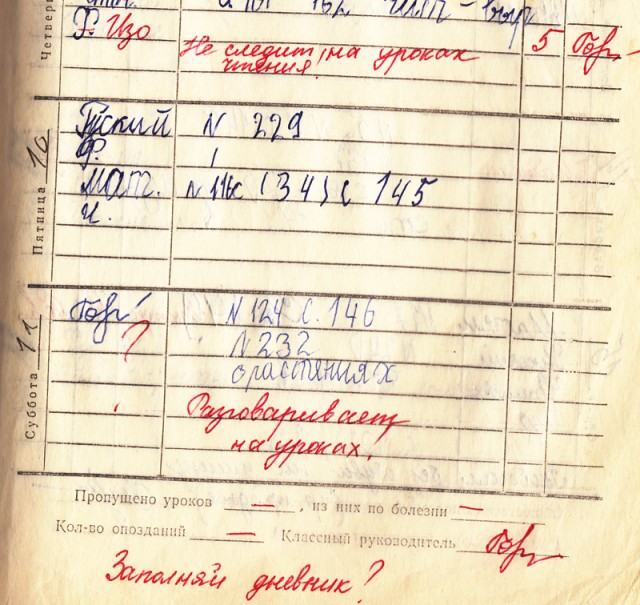 Четверг
Ф. Изо
Не следит на уроках 5 Гор
чтения!
Пятница 10
Руский N 229
Ф.
мат. N 116 (34) с 145
и.
Суббота 11
Гор N 124 с. 146
? N 232
о растяниях
Разговаривает
на уроках.
Пропущено уроков — , из них по болезни —
Кол-во опозданий — Классный руководитель Гор
Заполняй дневник?